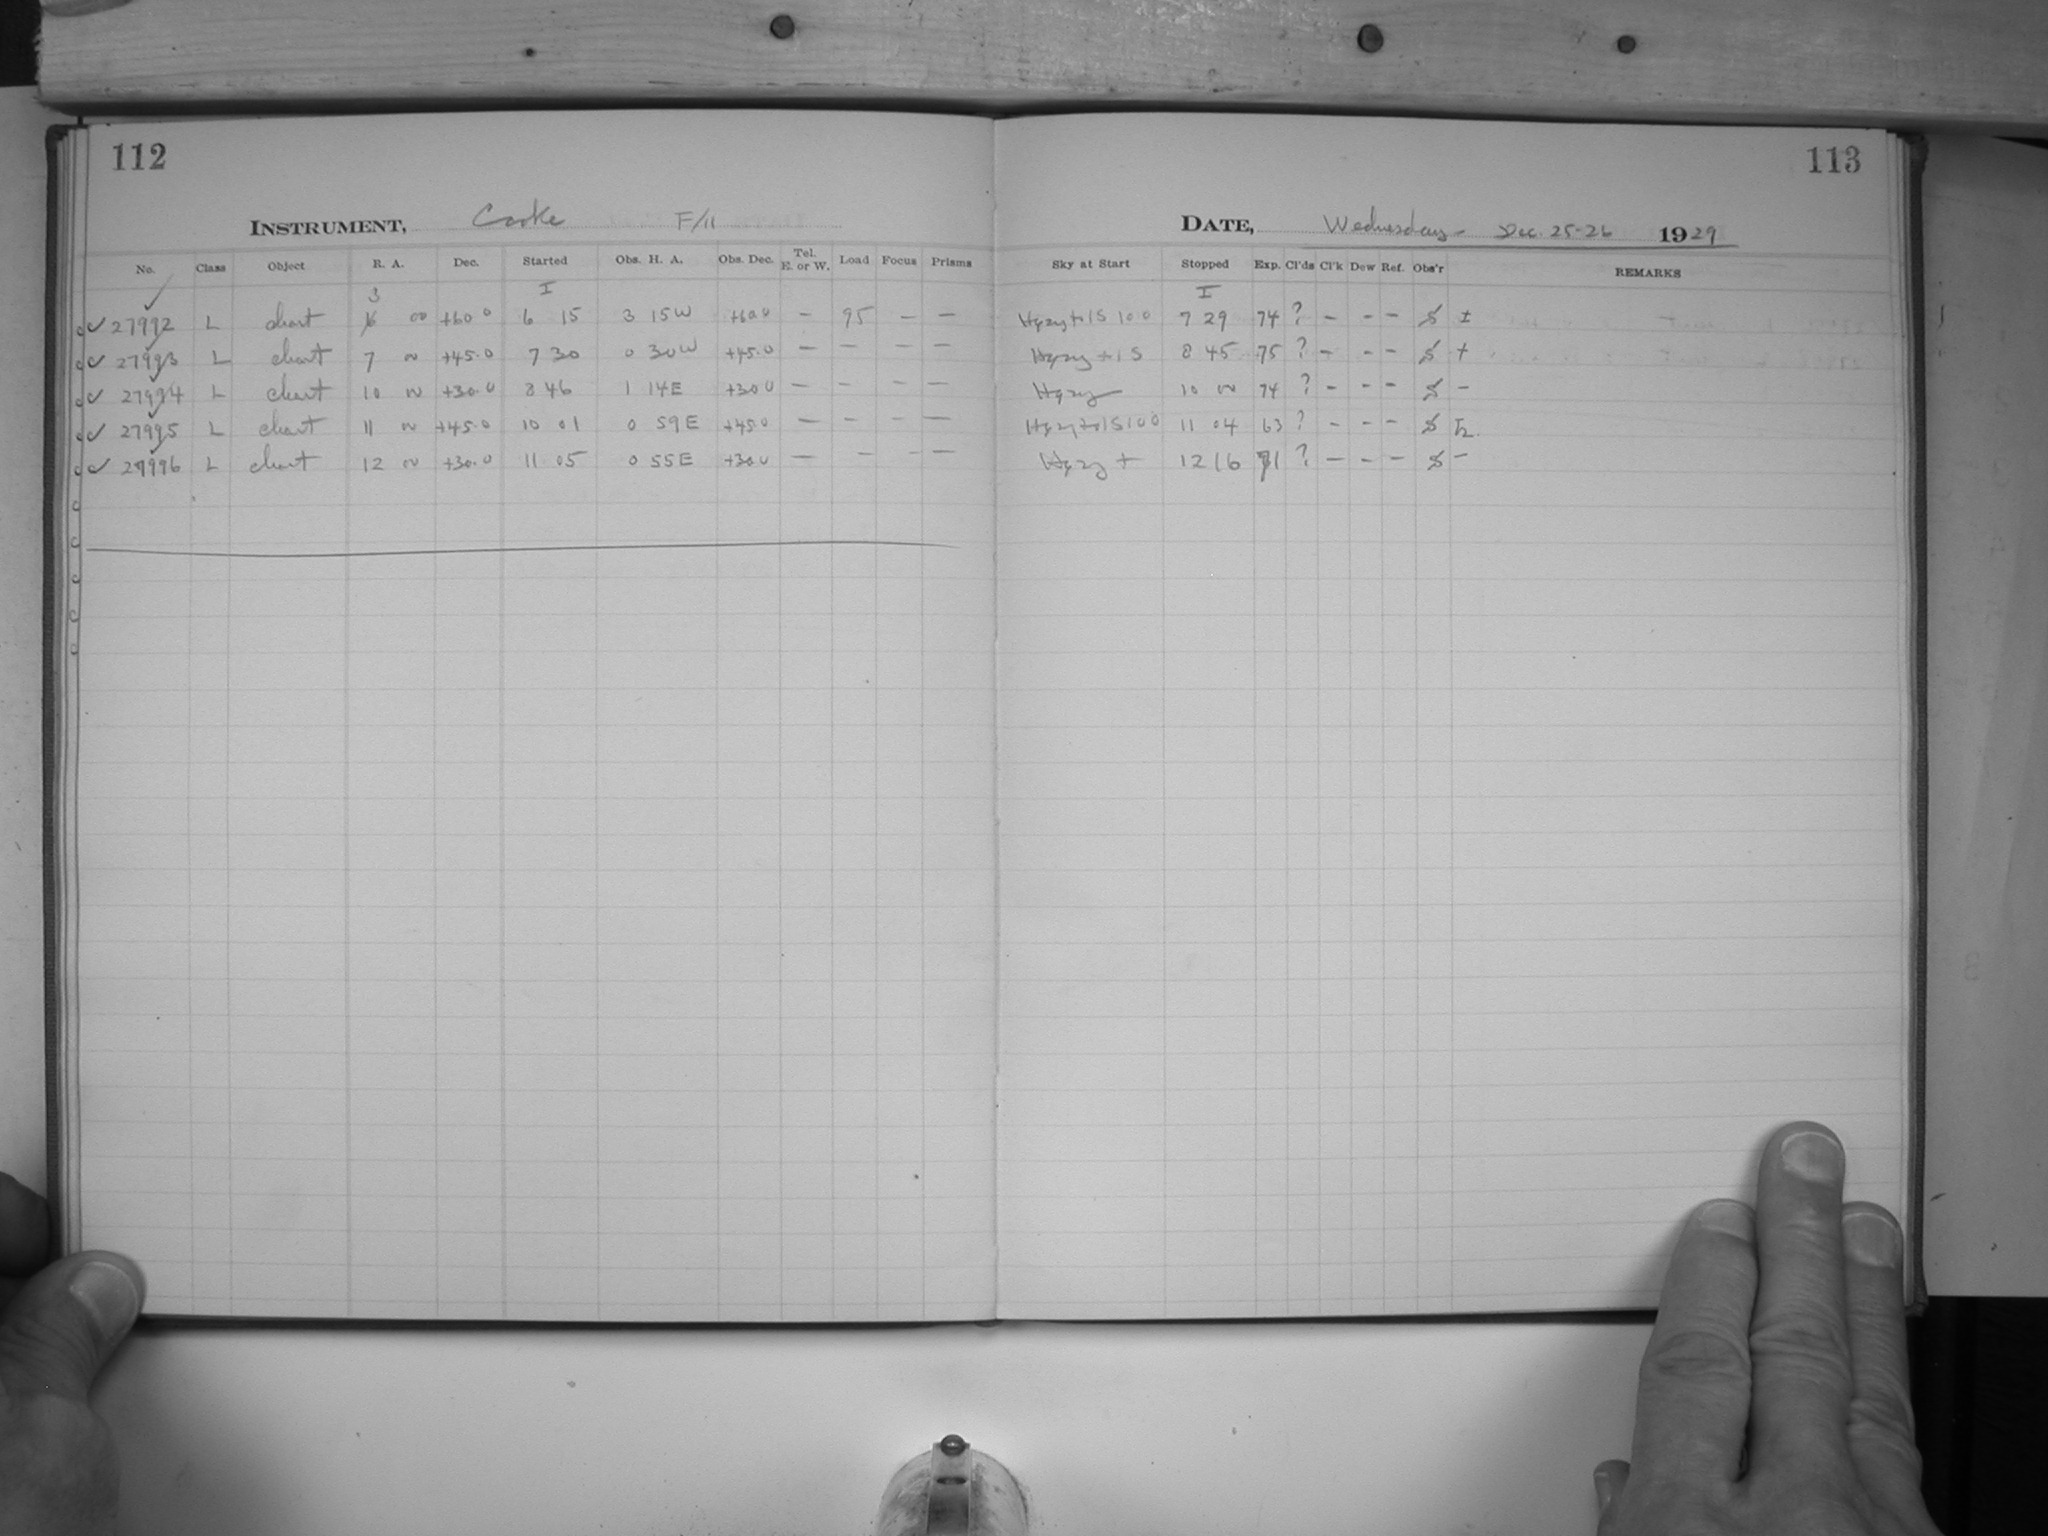 112
113
INSTRUMENT, Cooke F/11
DATE, Wednesday - Dec. 25-26 1929
No. Class Object R. A. Dec. Started Obs. H. A. Obs. Dec. Tel. E. or W. Load Focus Prisms Sky at Start Stopped Exp. Cl'ds Cl'k Dew Ref. Obs'r REMARKS
3 I I
✓ 27992 L chart 6 00 +60 0 6 15 3 15W +60 0 – 95 – – 7 29 74 ? – – – ±
✓ 27993 L chart 7 00 +45.0 7 30 0 30W +45.0 – – – – 8 45 75 ? – – – +
✓ 27994 L chart 10 00 +30.0 8 46 1 14E +30 0 – – – – Hazy 10 00 74 ? – – – –
✓ 27995 L chart 11 00 +45.0 10 01 0 59E +45.0 – – – – 11 04 63 ? – – –
✓ 27996 L chart 12 00 +30.0 11 05 0 55E +30 0 – – – – Hazy + 12 16 71 ? – – – –